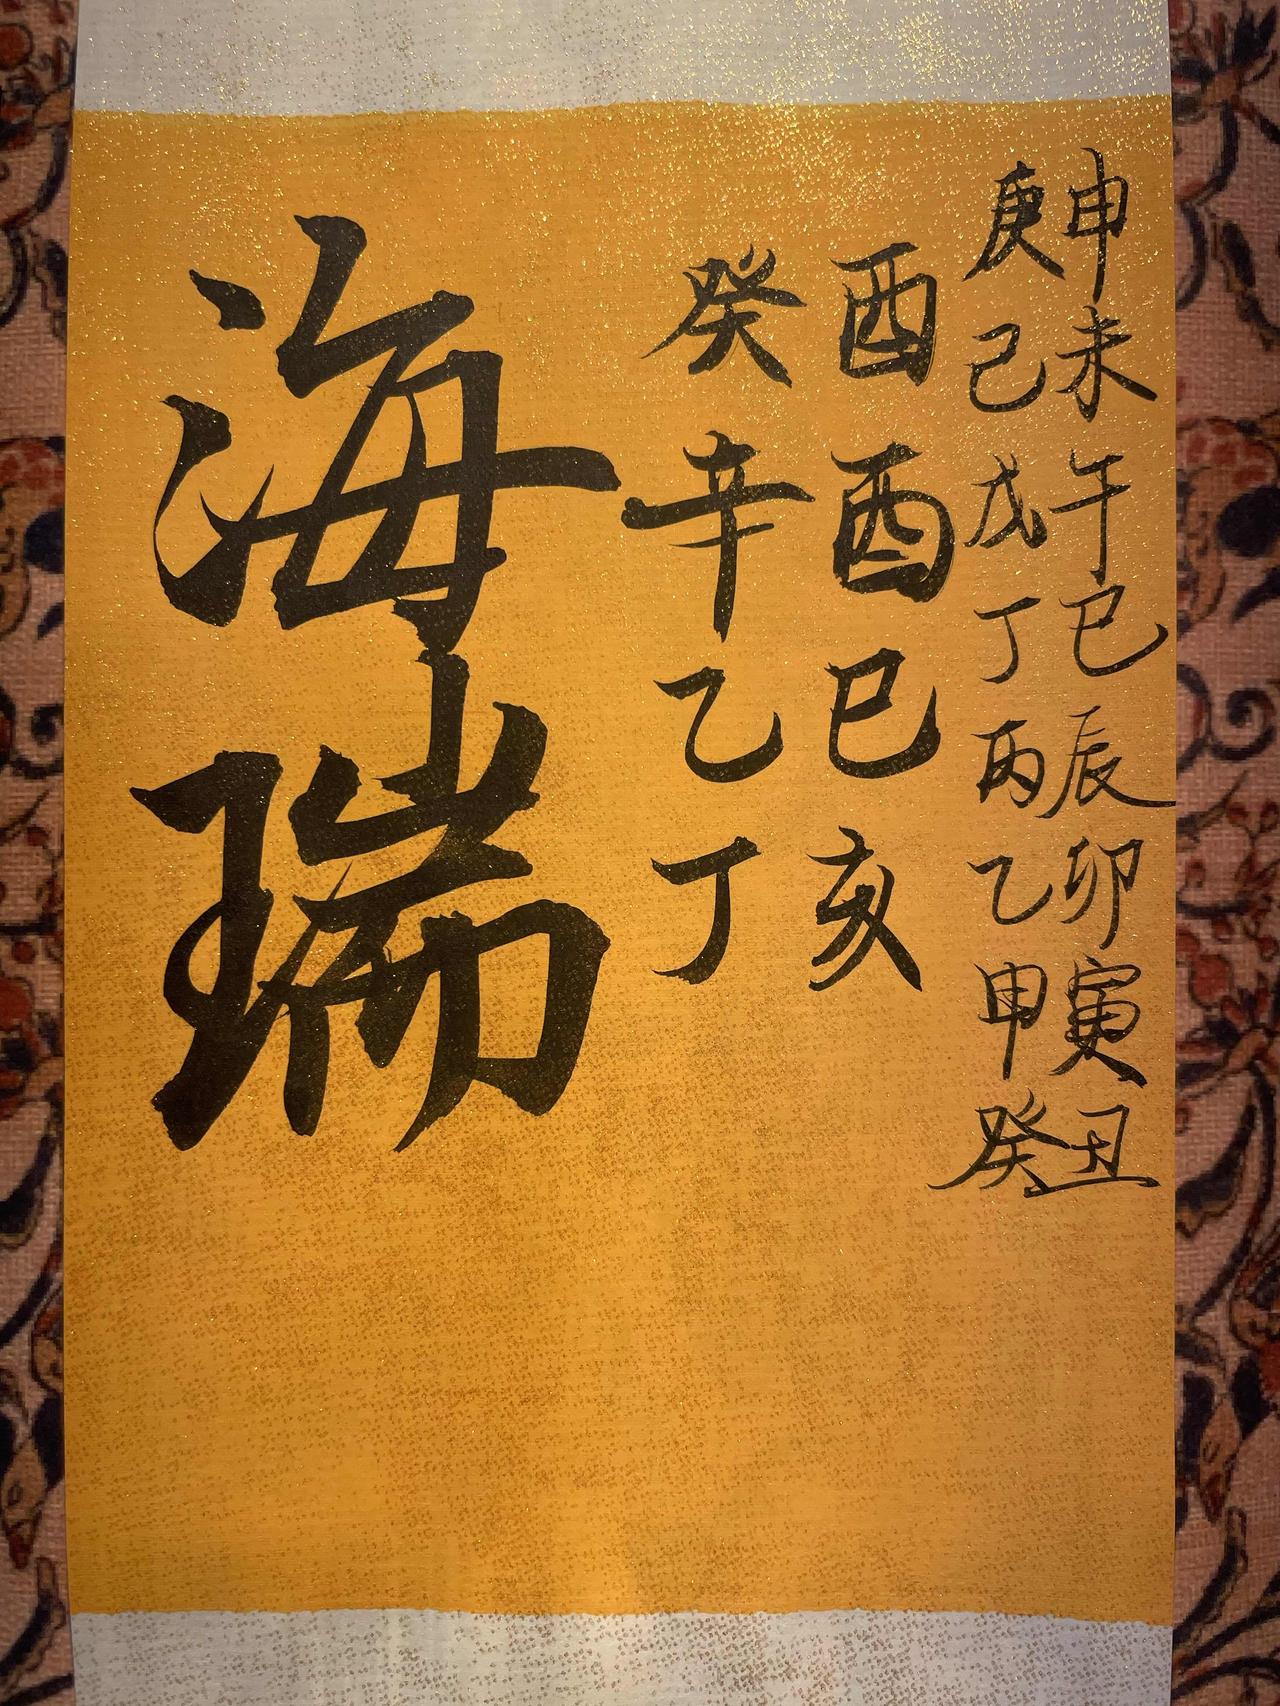 申未午巳辰卯寅丑
庚己戊丁丙乙甲癸
酉酉巳亥
癸辛乙丁
海瑞